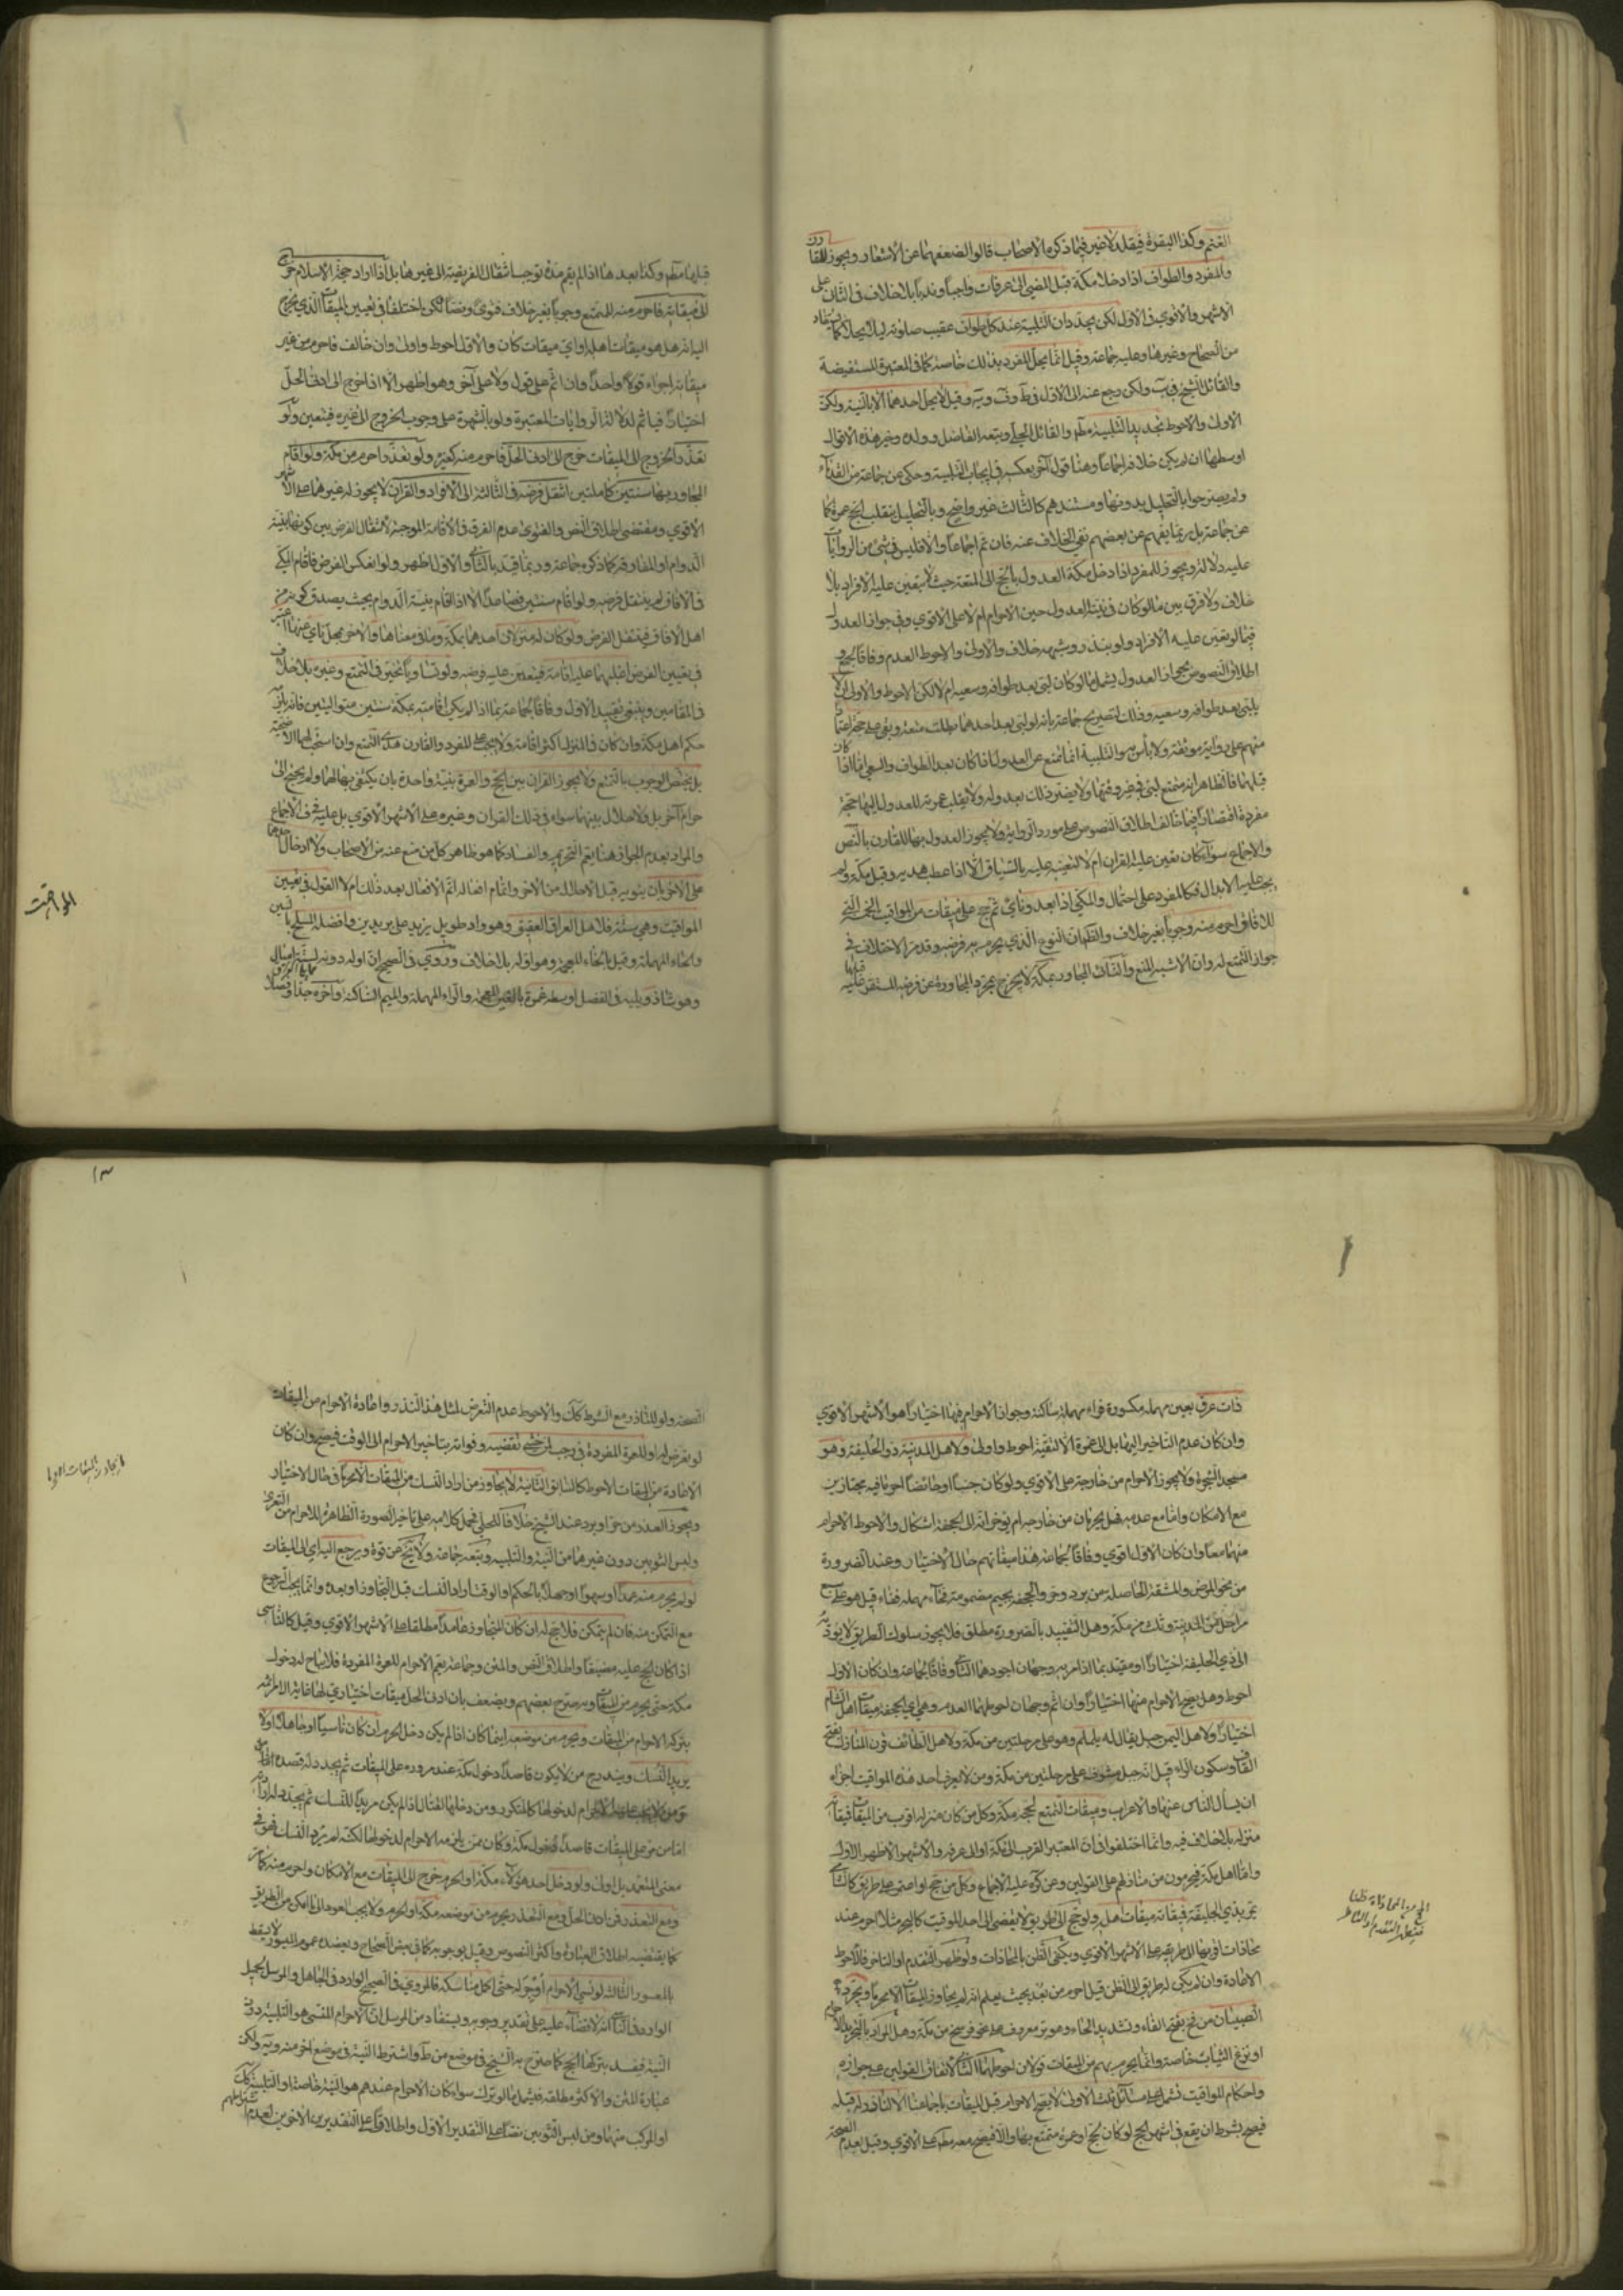 الغنم وكذا البقرة فيقلد لا غير فيما ذكره الاصحاب قالوا لضعفهما عن الاشعار ويجوز للقارن
والمفرد والطواف اذا دخلا مكة قبل المضي الى عرفات واجبا وندبا بلا خلاف في الثاني على
الاشهر والاقوى في الاول لكن يجددان التلبية عند كل طواف عقيب صلوته ليلا يحلا كما
من الصحاح وغيرها وعليه جماعة وقيل انما يحل المفرد بذلك خاصة كما في المعتبرة المستفيضة
والقائل الشيخ في يب ولكن رجع عنه الى الاول في ط وف وية وقيل لا يحل احدهما الا بالنية ولكن
الاولى والاحوط تجديد التلبية مطلقا والقائل الحلي وتبعه الفاضل وولده وخير هذه الاقوال
اوسطها ان لم يكن خلافه اجماعا وهنا قول آخر بعكسه في ايجاب التلبية وحكي عن جماعة من القدماء
ولم يصرحوا بالتحليل بدونها ومستندهم كالثالث غير واضح وبالتحليل ينقلب الحج عمرة كما
عن جماعة بل ربما يفهم عن بعضهم نفي الخلاف عنه فان تم اجماعا والا فليس في شئ من الروايات
عليه دلالة ويجوز للمفرد اذا دخل مكة العدول بالحج الى المتعة حيث لا يتعين عليه الافراد بلا
خلاف ولا فرق بين ما لو كان في نيته العدول حين الاحرام ام لا على الاقوى وفي جواز العدول
فيما لو تعين عليه الافراد ولو بنذر وشبهه خلاف والاولى والاحوط العدم وفاقا لجمع و
اطلاق النصوص بجواز العدول يشمل ما لو كان لبى بعد طوافه وسعيه ام لا لكن الاحوط والاولى ان لا
يلبي بعد طوافه وسعيه وذلك لتصريح جماعة بانه لو لبى بعد احدهما بطلت متعته وبقي على حجه اعتمادا
منهم على رواية موثقة ولا بأس به والتلبية انما تمنع عن العدول اذا كان بعد الطواف والسعي اما اذا كان
قبلهما فالظاهر انه متمتع لبى في غير وقتها ولا يضر ذلك بعدوله ولا ينقلب عمرته المعدول اليها حجة
مفردة اقتصارا فيما خالف اطلاق النصوص على مورد الرواية ولا يجوز العدول بها للقارن بالنص
والاجماع سواء كان تعين عليه القران ام لا لتعينه عليه بالسياق الا اذا عطب هديه وقبل مكة ولم
يجب عليه الابدال فكالمفرد على احتمال والمكي اذا بعد ونأى ثم حج على ميقات من المواقيت الخمسة التي
للافاقي احرم منه وجوبا بغير خلاف والظهران النوع الذي يحرم به فرضه وقد مر الاختلاف في
جواز التمتع له وان الاشبه المنع والثالث المجاور بمكة لا يخرج بمجرد المجاورة عن فرضه المستقر عليه
قبلها
قبلها مطلقا وكذا بعدها اذا لم يقم مدة توجب انتقال الفريضة الى غيرها بل اذا اراد حجة الاسلام خرج
الى ميقاته فاحرم منه للتمتع وجوبا بغير خلاف فتوى ونصا لكن اختلفا في تعيين الميقات الذي يخرج
اليه انه هل هو ميقات اهله او اي ميقات كان والاول احوط واولى وان خالف فاحرم من غير
ميقاته اجزاه قولا واحدا وان اثم على قول ولا على آخر وهو اظهر الا اذا خرج الى ادنى الحل
اختيارا فيأثم لدلالة الروايات المعتبرة ولو بالشهرة على وجوب الخروج الى غيره فيتعين ولو
تعذر الخروج الى الميقات خرج الى ادنى الحل فاحرم منه كغيره ولو تعذر احرم من مكة ولو اقام
المجاور بها سنتين كاملتين انتقل فرضه في الثالثة الى الافراد والقران لا يجوز له غيرهما على الاشهر
الاقوى ومقتضى اطلاق النص والفتوى عدم الفرق في الاقامة الموجبة لانتقال الفرض بين كونها بنية
الدوام او المفارقة كما ذكره جماعة وربما قيد بالثاني والاول اظهر ولو انعكس الفرض فاقام المكي
في الافاق لم ينتقل فرضه ولو اقام سنتين فصاعدا الا اذا اقام بنية الدوام بحيث يصدق كونه من
اهل الافاق فينتقل الفرض ولو كان له منزلان احدهما بمكة وما في معناها والاخر بمحل نأى عنها اعتبر
في تعيين الفرض اغلبهما عليه اقامة فيتعين عليه فرضه ولو تساويا تخير في التمتع وغيره بلا خلاف
في المقامين وينبغي تقييد الاول وفاقا لجماعة بما اذا لم يكن اقامته بمكة سنتين متواليتين فانه يلزمه
حكم اهل مكة وان كان في المنزل اكثر اقامة ولا يجب على المفرد والقارن هدي التمتع وان استحب لهما الاضحية
بل يختص الوجوب بالتمتع ولا يجوز القران بين الحج والعمرة بنية واحدة بان يكتفي بها لهما ولم يحتج الى
احرام آخر بل ولا احلال بينهما سواء في ذلك القران وغيره على الاشهر الاقوى بل عليه في ف الاجماع
والمراد بعدم الجواز هنا يعم التحريم والفساد كما هو ظاهر كل من منع عنه من الاصحاب ولا ادخال احدهما
على الاخر بان ينوي به قبل الاحلال من الاخر واتمام افعاله اتم الافعال بعد ذلك ام لا القول في تعيين
المواقيت وهي ستة فلاهل العراق العقيق وهو واد طويل يزيد على بريدين وافضله المسلح بالسين
والحاء المهملة وقيل بالخاء المعجمة وهو اوله بلا خلاف وروي في الصحيح ان اوله دونه لستة اميال
وهو شاذ ويليه في الفضل اوسطه غمرة بالغين المعجمة والراء المهملة والميم الساكنة وآخره
المواقيت
ذات عرق بعين مهملة مكسورة فراء مهملة ساكنة وجواز الاحرام فيها اختيارا هو الاشهر الاقوى
وان كان عدم التاخير اليها بل الى غمرة الا لتقية احوط واولى ولاهل المدينة ذو الحليفة وهو
مسجد الشجرة ولا يجوز الاحرام من خارجه على الاقوى ولو كان جنبا او حائضا احرما فيه مجتازين
مع الامكان واما مع عدمه فهل يحرمان من خارجه ام يؤخرانه الى الجحفة اشكال والاحوط الاحرام
منهما معا وان كان الاول اقوى وفاقا لجماعة هذا ميقاتهم حال الاختيار وعند الضرورة
من نحو المرض والمشقة الحاصلة من برد وحر والجحفة بجيم مضمومة فحاء مهملة ففاء قيل هو على سبع
مراحل من المدينة وثلث من مكة وهل التقييد بالضرورة مطلق فلا يجوز سلوك الطريق لا يؤديه
الى ذي الحليفة اختيارا او مقيد بما اذا مر به وجهان اجودهما الثاني وفاقا لجماعة وان كان الاول
احوط وهل يصح الاحرام منها اختيارا وان اثم وجهان احوطهما العدم وهي اي الجحفة ميقات اهل الشام
اختيارا ولاهل اليمن جبل يقال له يلملم وهو على مرحلتين من مكة ولاهل الطائف قرن المنازل بفتح
القاف وسكون الراء قيل انه جبل مشرف على مرحلتين من مكة ومن لا يعرف احد هذه المواقيت اجزاه
ان يسأل الناس عنها والاعراب وميقات التمتع لحجه مكة وكل من كان منزله اقرب من الميقات فميقاته
منزله بلا خلاف فيه وانما اختلفوا في ان المعتبر القرب الى مكة او الى عرفه والاشهر الاظهر الاول
واما اهل مكة فيحرمون من منازلهم على القولين وعن كره عليه الاجماع وكل من حج او اعتمر على طريق كالشامي
يمر بذي الحليفة فميقاته ميقات اهله ولو حج الى طريق لا يفضي الى احد المواقيت كالبحر مثلا احرم عند
محاذات اقربها الى طريقه على الاشهر الاقوى ويكفي الظن بالمحاذات ولو ظهر التقدم او التاخر فالاحوط
الاعادة وان لم يكن له طريق الى الظن قيل احرم من بعد بحيث يعلم انه لم يجاوز الميقات الا محرما ويجرد
الصبيان من فخ بفتح الفاء وتشديد الخاء وهو بئر معروف على نحو فرسخ من مكة وهل المراد بالتجريد الاحرام
او نزع الثياب خاصة وانما يحرم بهم من الميقات قولان احوطهما الثاني لاتفاق القولين على جوازه
واحكام المواقيت تشمل على مسائل ثلث الاولى لا يصح الاحرام قبل الميقات باجماعنا الا لناذر له قبله
فيصح بشرط ان يقع في اشهر الحج لو كان لحج او عمرة متمتع بها والا فيصح معه مطلقا على الاقوى وقيل بعدم
الصحة
الصحة ولو للناذر مع الشرط كك والاحوط عدم التعرض لمثل هذا النذر واعادة الاحرام من الميقات
لو تعرض له او للعمرة المفردة في رجب لمن خشي تقضيه وفواته بتاخير الاحرام الى الوقت فيصح وان كان
الاعادة من الميقات احوط كالسابق الثانية لا يجاوز من اراد النسك من الميقات الا محرما في حال الاختيار
ويجوز العذر من حر او برد عند الشيخ خلافا للحلي فحمل كلامه على تاخير الصورة الظاهرة للاحرام من التعري
ولبس الثوبين دون غيرهما من النية والتلبية وتبعه جماعة ولا يخ عن قوة ويرجع اليه اي الى الميقات
لو لم يحرم منه عمدا او سهوا او جهلا بالحكم او الوقت اراد النسك قبل التجاوز او بعده وانما يجب الرجوع
مع التمكن منه فان لم يتمكن فلا حج له ان كان المتجاوز عامدا مطلقا على الاشهر الاقوى وقيل كالناسي
اذا كان الحج عليه مضيقا واطلاق النص والمتن وجماعة يعم الاحرام للعمرة المفردة فلا يباح له دخول
مكة حتى يحرم من الميقات وبه صرح بعضهم ويضعف بان ادنى الحل ميقات اختياري لها غاية الامر اثمه
بتركه الاحرام من الميقات ويحرم من موضعه اينما كان اذا لم يكن دخل الحرم ان كان ناسيا او جاهلا او لا
يريد النسك ويندرج من لا يكون قاصدا دخول مكة عند مروره على الميقات ثم يجدد له قصده
ومن لا يجب عليه الاحرام لدخولها كالمتكرر ومن دخلها لقتال اذا لم يكن مريدا للنسك ثم يجدد له ارادته
اما من مر على الميقات قاصدا لدخول مكة وكان ممن يلزمه الاحرام لدخولها لكنه لم يرد النسك فهو في
معنى المتعمد بل اولى ولو دخل احد هؤلاء مكة او الحرم خرج الى الميقات مع الامكان واحرم منه
ومع التعذر فمن ادنى الحل ومع التعذر يحرم من موضعه مكة او الحرم ولا يجب العود الى ما امكن من الطريق
كما يقتضيه اطلاق العبارة واكثر النصوص وقيل بوجوبه كما في بعض الصحاح ويعضده عموم الميسور لا يسقط
بالمعسور الثالثة لو نسي الاحرام حتى اكمل مناسكه فالمروي في الصحيح الوارد في الجاهل والمرسل لجميل
الوارد في الناسي انه لا قضاء عليه على تقدير وجوبه ويستفاد من المرسل ان الاحرام المنسي هو التلبية دون
النية فيفسد بتركها الحج كما صرح به الشيخ في موضع من ط واشترط النية في موضع آخر منه وية ولكن
عبارة المتن والاكثر مطلقة فيشمل ما لو ترك سواء كان الاحرام عندهم هو النية خاصة او التلبية كك
او المركب منهما ومن لبس الثوبين نصا على التقدير الاول واطلاقا على التقديرين الاخيرين لعدم